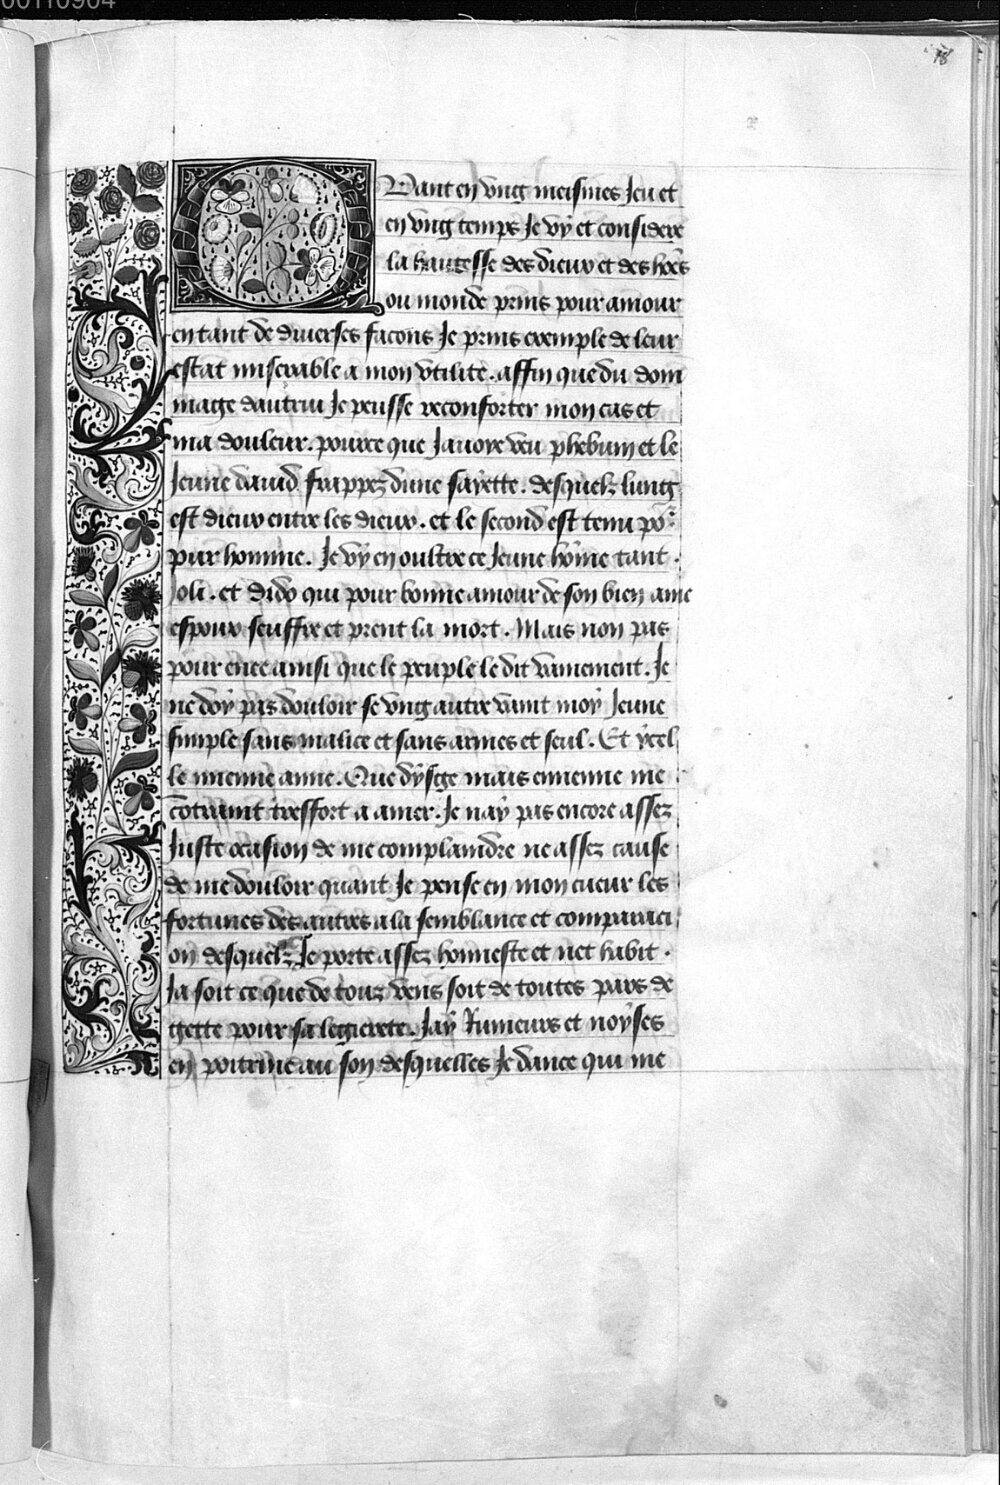 00110904
18
Quant en vng meismes lieu et
en vng temps Je vy et considere
la haultesse des dieux et des hōes
ou monde prins pour amour
en tant de diuerses facons Je prins exemple de leur
estat miserable a mon vtilite. affin que du dom
mage dautrui Je peusse reconforter mon cas et
ma douleur. pource que Jauoye veu phebum et le
Jeune dauid frappez dune sayette. desquelz lung
est dieux entre les dieux. et le second est tenu po᷑
pur homme. Je vy en oultre ce Jeune hōme tant
Joli. et dido qui pour bonne amour de son bien ame
espoux seuffre et prent la mort. Mais non pas
pour enee ainsi que le peuple le dit vainement. Je
ne doy pas douloir se vng autre vaint moy Jeune
simple sans malice et sans armes et seul. Et ycel
le mienne amie. Que dysge mais ennemie me
cōtraint tresfort a amer. Je nay pas encore assez
Juste ocasion de me complaindre ne assez cause
de me douloir quant Je pense en mon cueur les
fortunes des autres a la semblance et comparaci
on desquelz Je porte assez honneste et net habit.
Ja soit ce que de tous vens soit de toutes pars de
gette pour sa legierete. Jay Rumeurs et noyses
en poitrine au son desquelles Je dance qui me